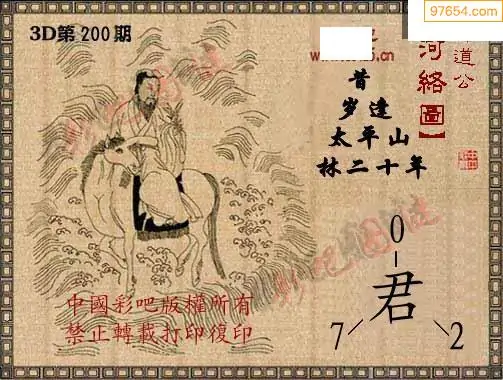 97654.com
3D第200期
道公
河络
圖】
昔
岁逢
太平山
林二十年
0
君
7
2
彩吧图迷
彩吧图迷
中國彩吧版權所有
禁止轉載打印復印